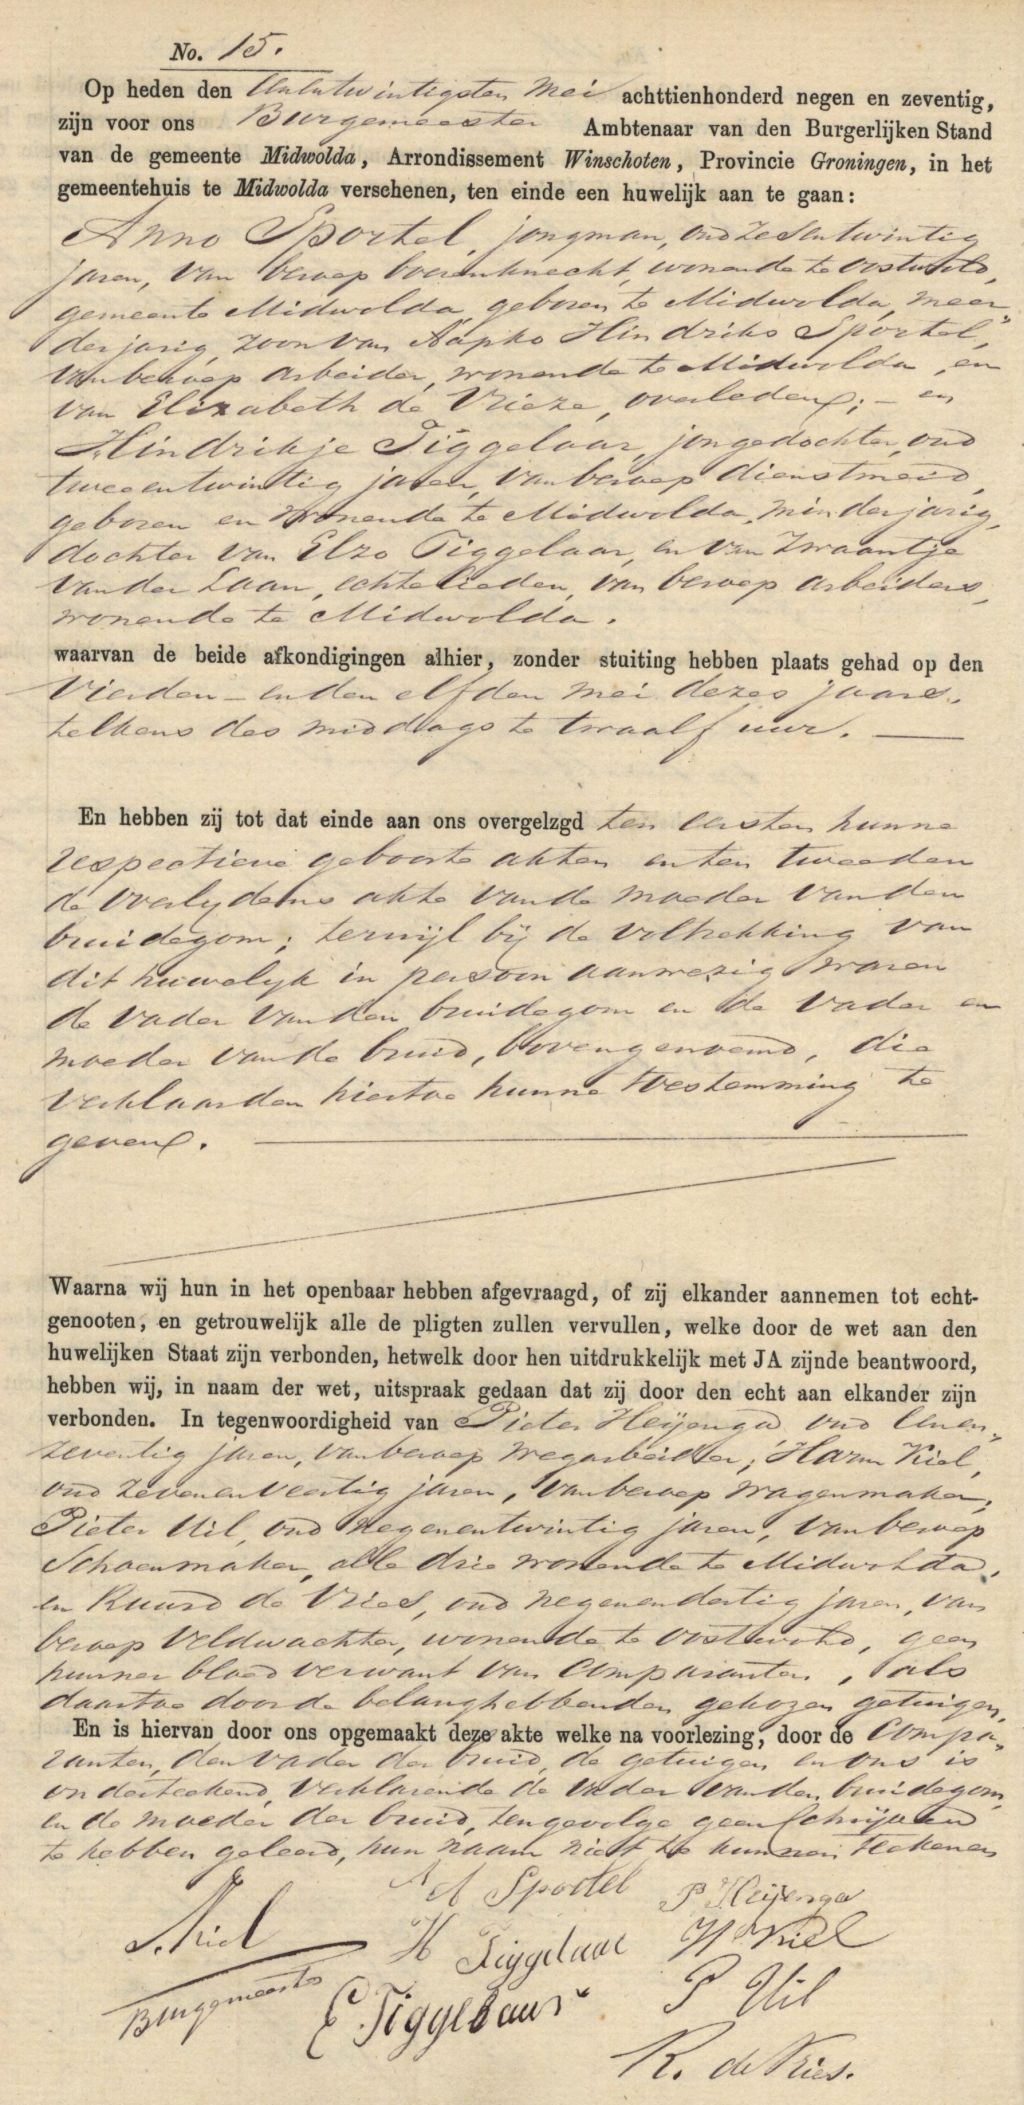 No. 15.
Op heden den achtentwintigsten Mei achttienhonderd negen en zeventig,
zijn voor ons Burgemeester Ambtenaar van den Burgerlijken Stand
van de gemeente Midwolda, Arrondissement Winschoten, Provincie Groningen, in het
gemeentehuis te Midwolda verschenen, ten einde een huwelijk aan te gaan:
Anno Sportel, jongman, oud zesentwintig
jaren, van beroep boerenknecht, wonende te Oostwold,
gemeente Midwolda, geboren te Midwolda, meer-
derjarig, zoon van Aapko Hindriks Sportel,
van beroep arbeider, wonende te Midwolda, en
van Elizabeth de Vrieze, overleden; - en
Hindrikje Tiggelaar, jongedochter, oud
tweeentwintig jaren, van beroep dienstmeid,
geboren en wonende te Midwolda, minderjarig,
dochter van Elzo Tiggelaar, en van Zwaantje
van der Laan, echtelieden, van beroep arbeiders,
wonende te Midwolda.
waarvan de beide afkondigingen alhier, zonder stuiting hebben plaats gehad op den
vierden - en den elfden Mei dezes jaars,
telkens des middags te twaalf uur. —
En hebben zij tot dat einde aan ons overgelzgd ten eersten hunne
respectieve geboorte akten en ten tweeden
de overlydens akte van de moeder van den
bruidegom; terwijl bij de voltrekking van
dit huwelyk in persoon aanwezig waren
de vader van den bruidegom en de vader en
moeder van de bruid, bovengenoemd, die
verklaarden hiertoe hunne toestemming te
geven.
Waarna wij hun in het openbaar hebben afgevraagd, of zij elkander aannemen tot echt-
genooten, en getrouwelijk alle de pligten zullen vervullen, welke door de wet aan den
huwelijken Staat zijn verbonden, hetwelk door hen uitdrukkelijk met JA zijnde beantwoord,
hebben wij, in naam der wet, uitspraak gedaan dat zij door den echt aan elkander zijn
verbonden. In tegenwoordigheid van Pieter Heijenga, oud eenen-
zeventig jaren, van beroep wegarbeider; Harm Kiel,
oud zevenenveertig jaren, van beroep wagenmaker;
Pieter Uil, oud negenentwintig jaren, van beroep
Schoenmaker, alle drie wonende te Midwolda,
en Ruurd de Vries, oud negenendertig jaren, van
beroep veldwachter, wonende te Oostwold, geen
hunner bloedverwant van Comparanten, als
daartoe door de belanghebbenden gekozen getuigen.
En is hiervan door ons opgemaakt deze akte welke na voorlezing, door de Compa-
ranten, den vader der bruid, de getuigen en ons is
onderteekend, verklarende de vader van den bruidegom,
en de moeder der bruid, tengevolge geen Schrijven
te hebben geleerd, hun naam niet te kunnen teekenen
A Sportel P Heijenga
Kiel H Tiggelaar H Kiel
Burgemeester E. Tiggelaar P Uil
R. de Vries.